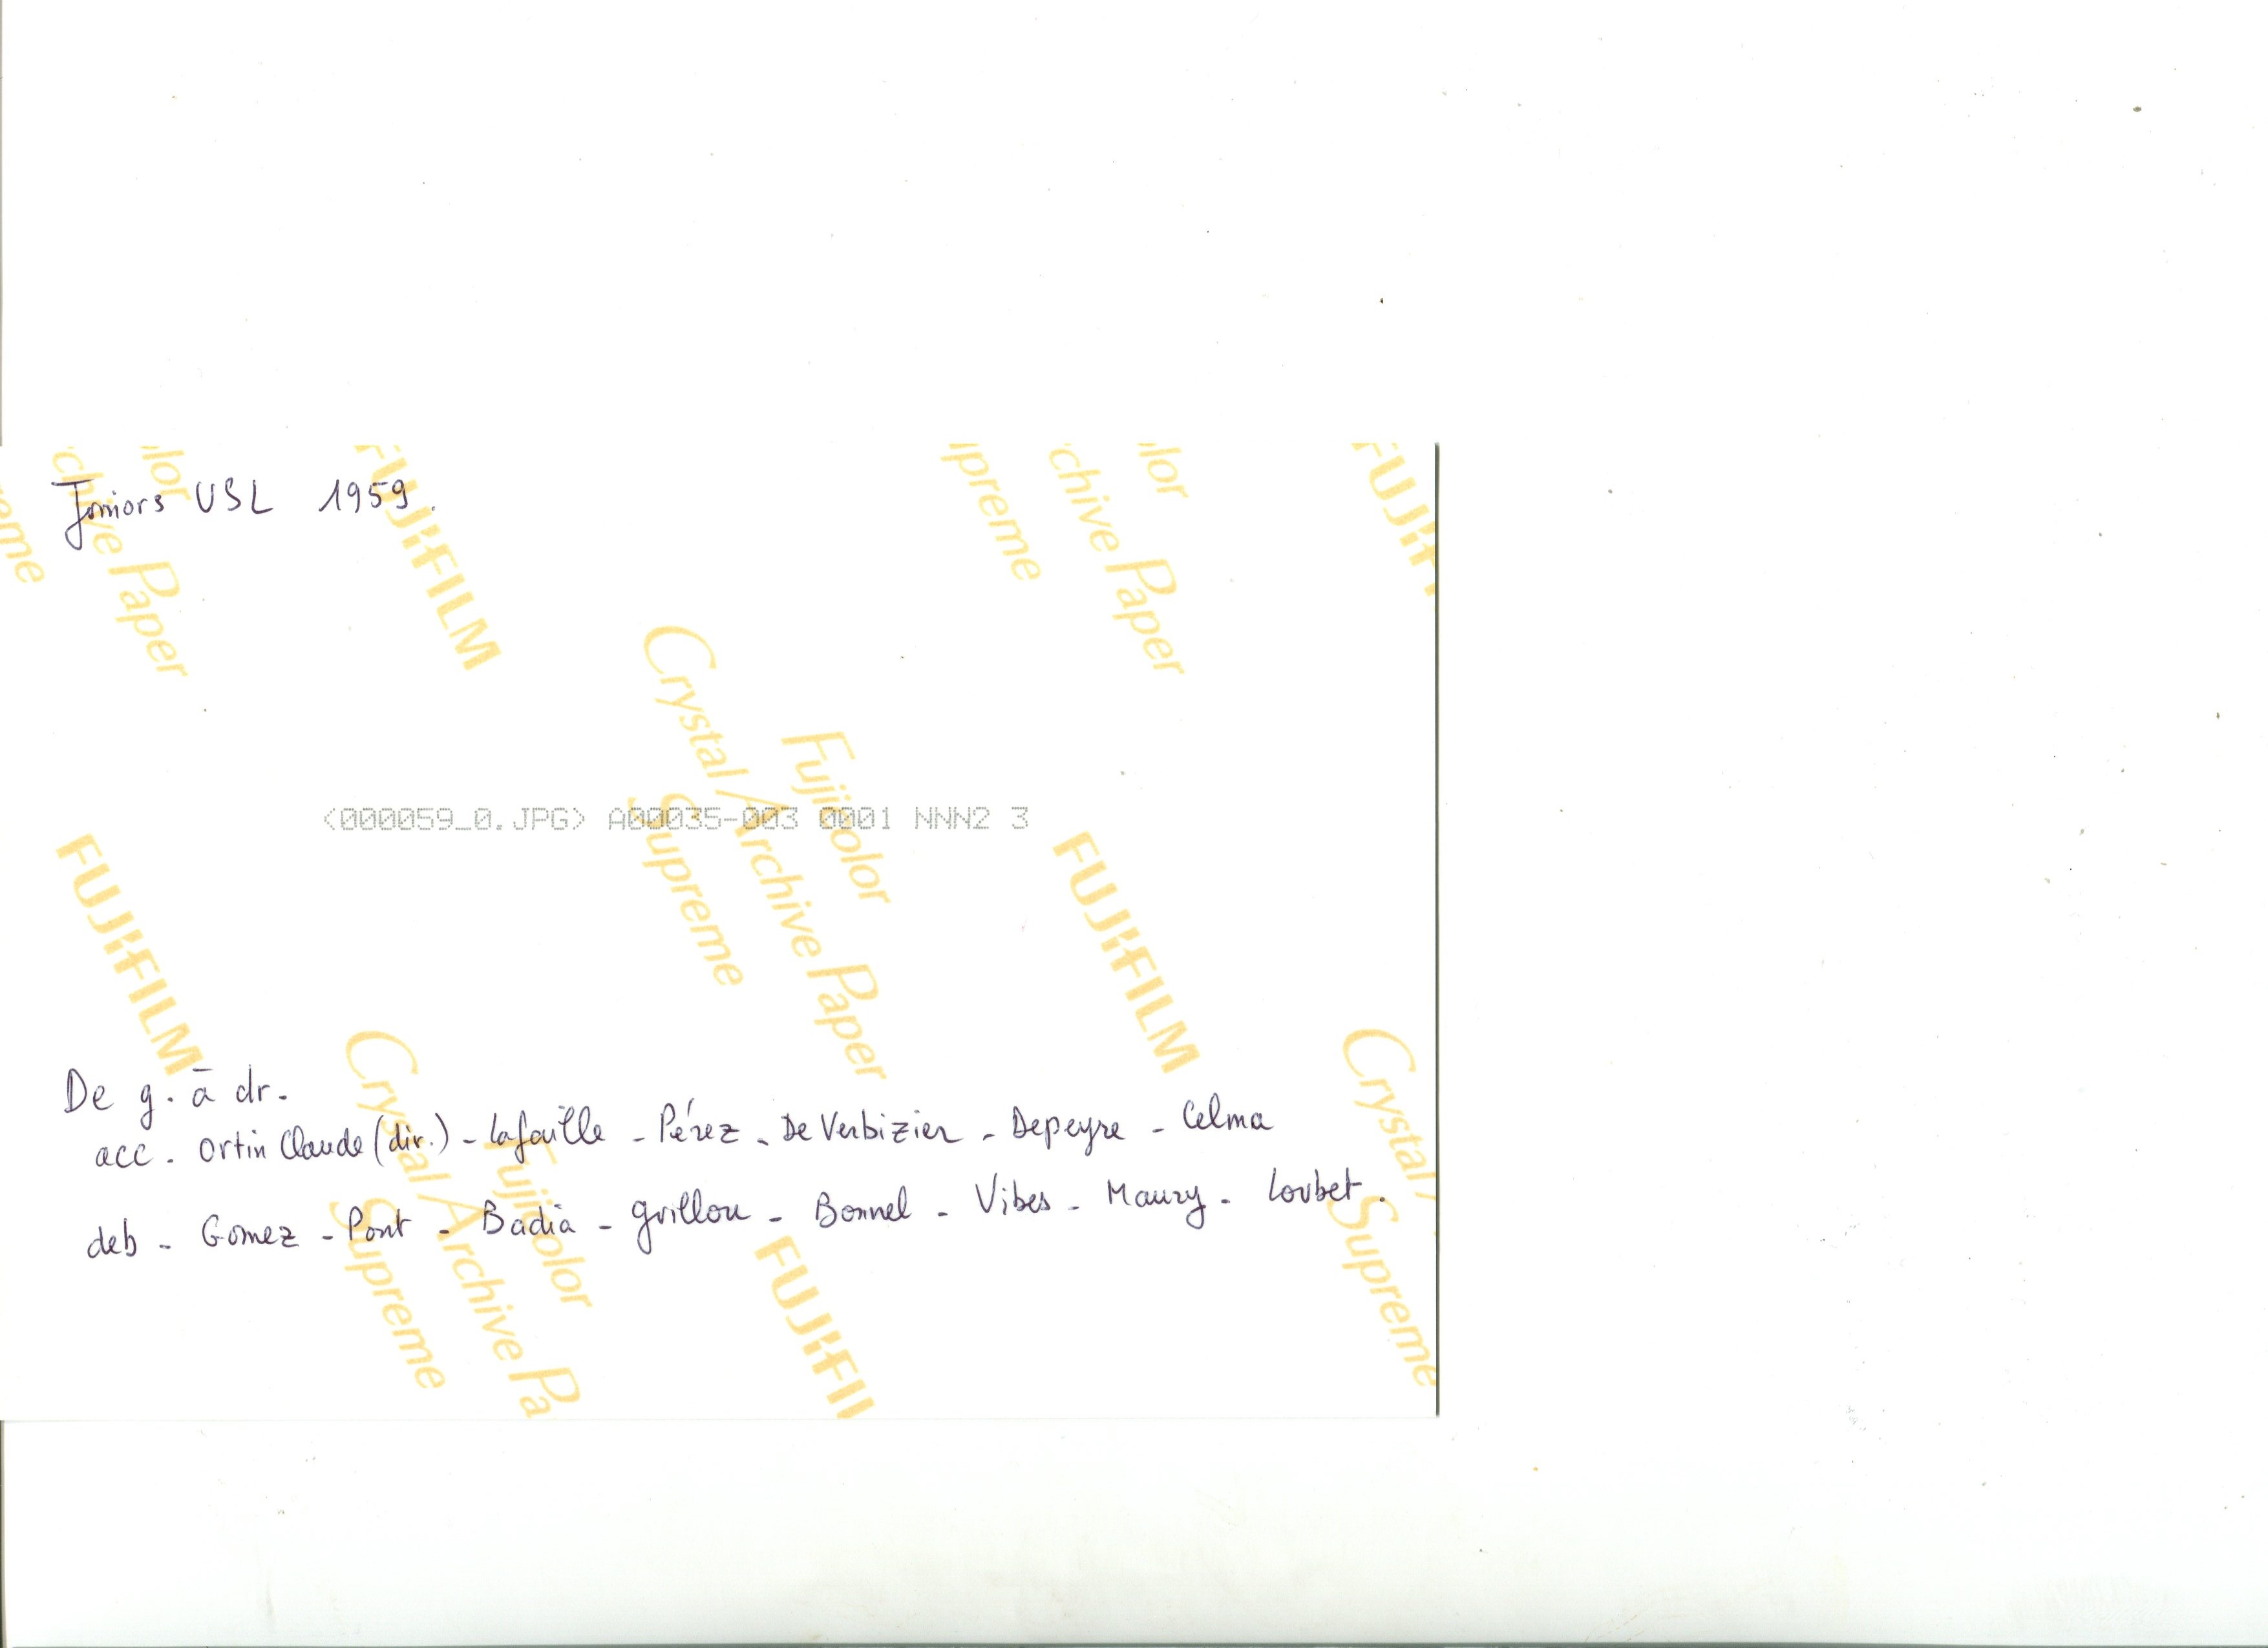 Juniors USL 1959.
<000059_0.JPG> A00035-003 0001 NNN2 3
De g. à dr.
acc. Ortin Claude (dir.) - Lafaille - Pérez - De Verbizier - Depeyre - Celma
deb - Gomez - Pont - Badia - Grillou - Bonnel - Vibes - Maury - Loubet.
FUJIFILM
Fujicolor
Crystal Archive Paper
Supreme